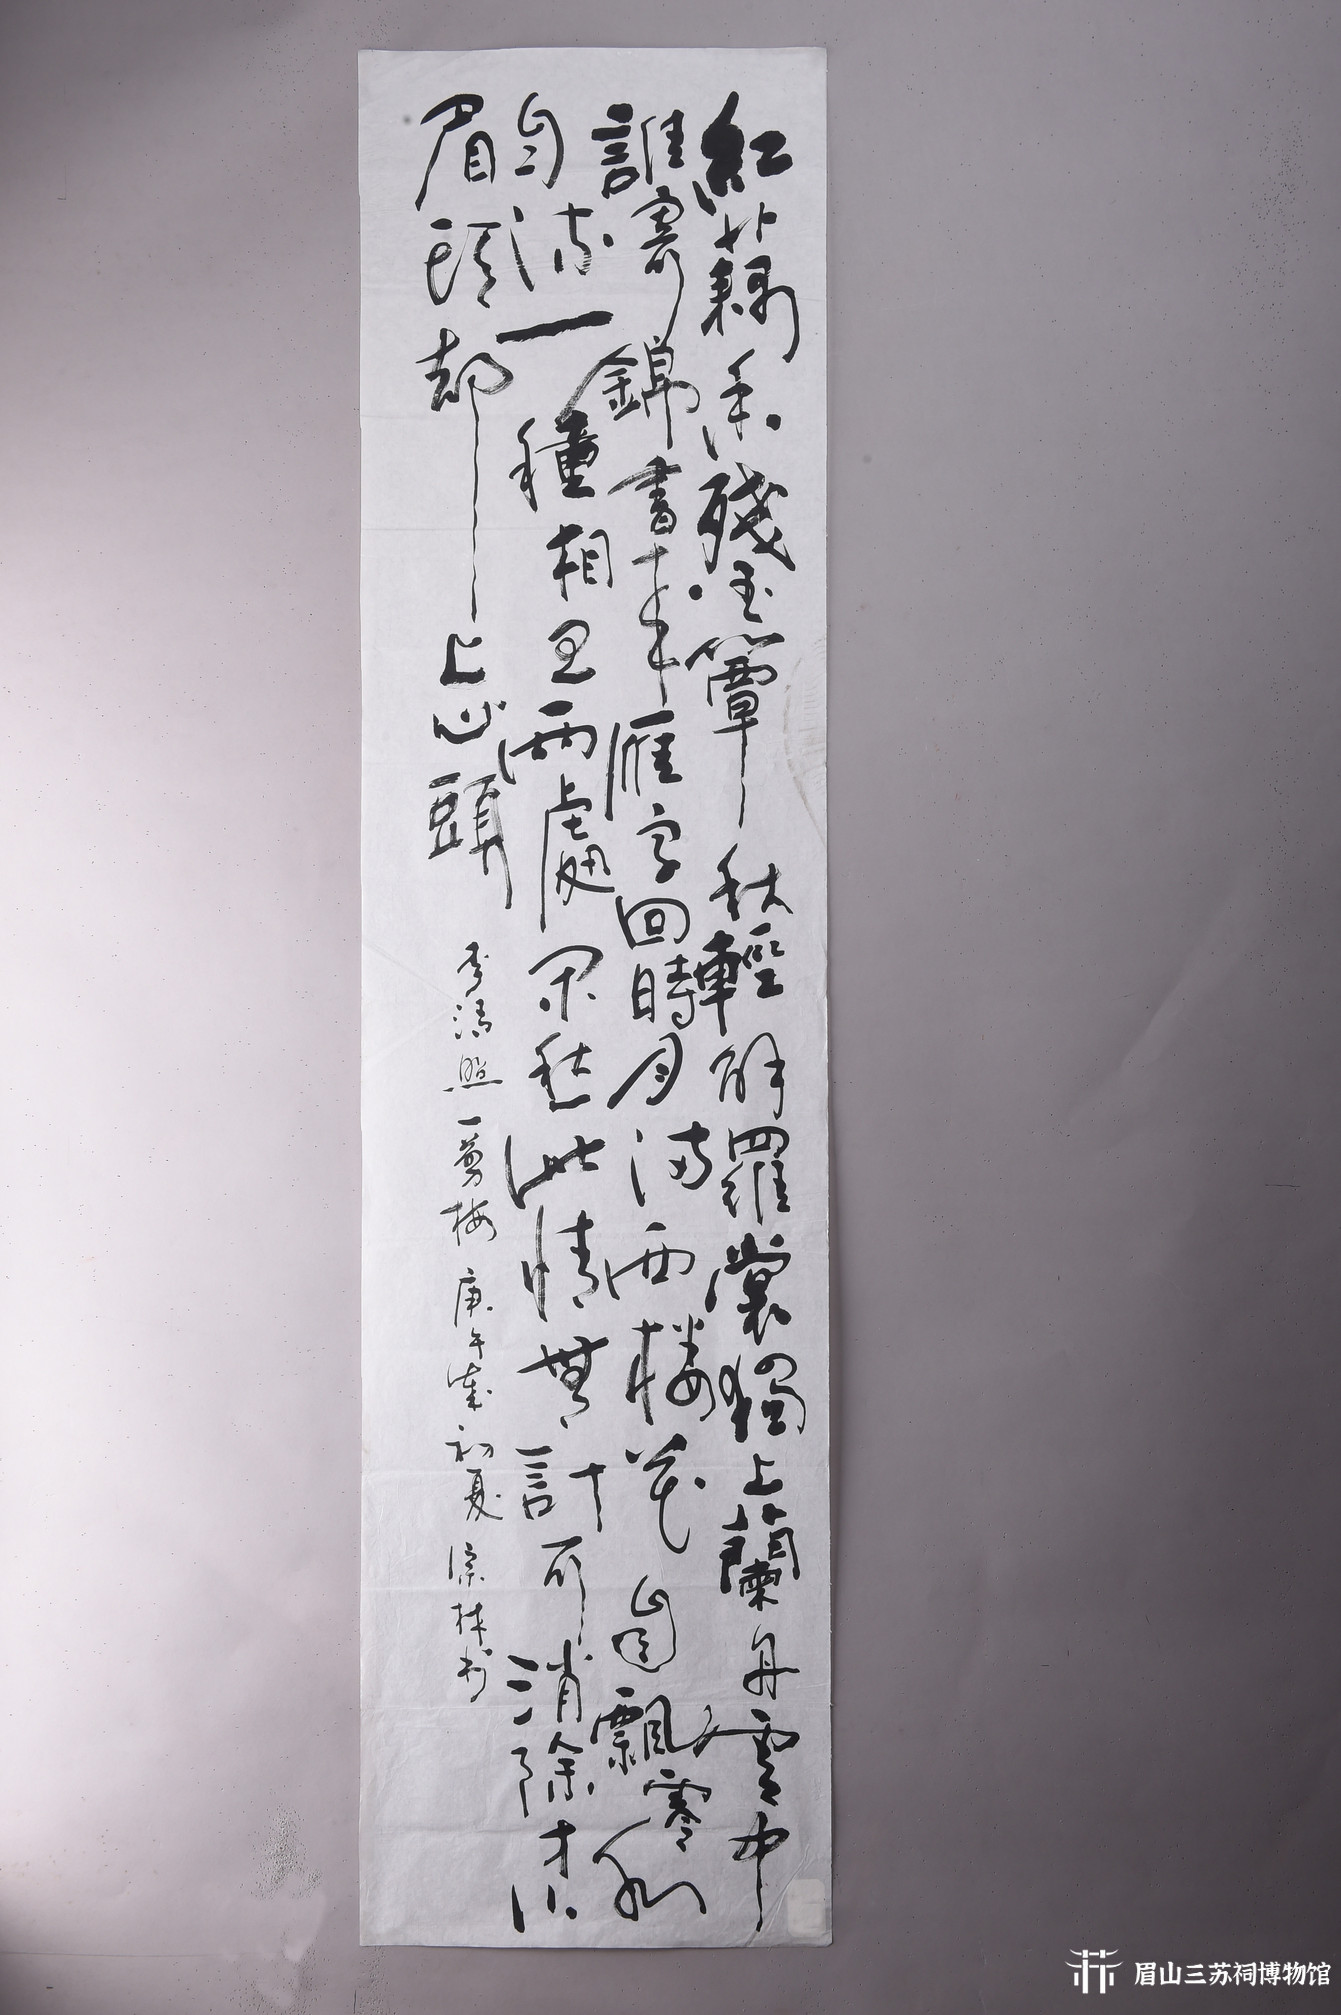 紅藕香殘玉簟秋輕解羅裳獨上蘭舟雲中
誰寄錦書來雁字回時月滿西樓花自飄零水
自流一種相思兩處閑愁此情無計可消除才下
眉頭却上心頭
李清照一剪梅 庚午歲初夏 林书
眉山三苏祠博物馆